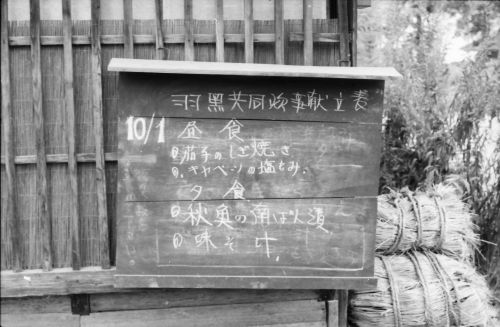 羽黒共同炊事献立表
10/1 昼食
①茄子のしぎ焼き
②キャベツの塩もみ.
夕食
①秋奥の南ばん漬
②味そ汁